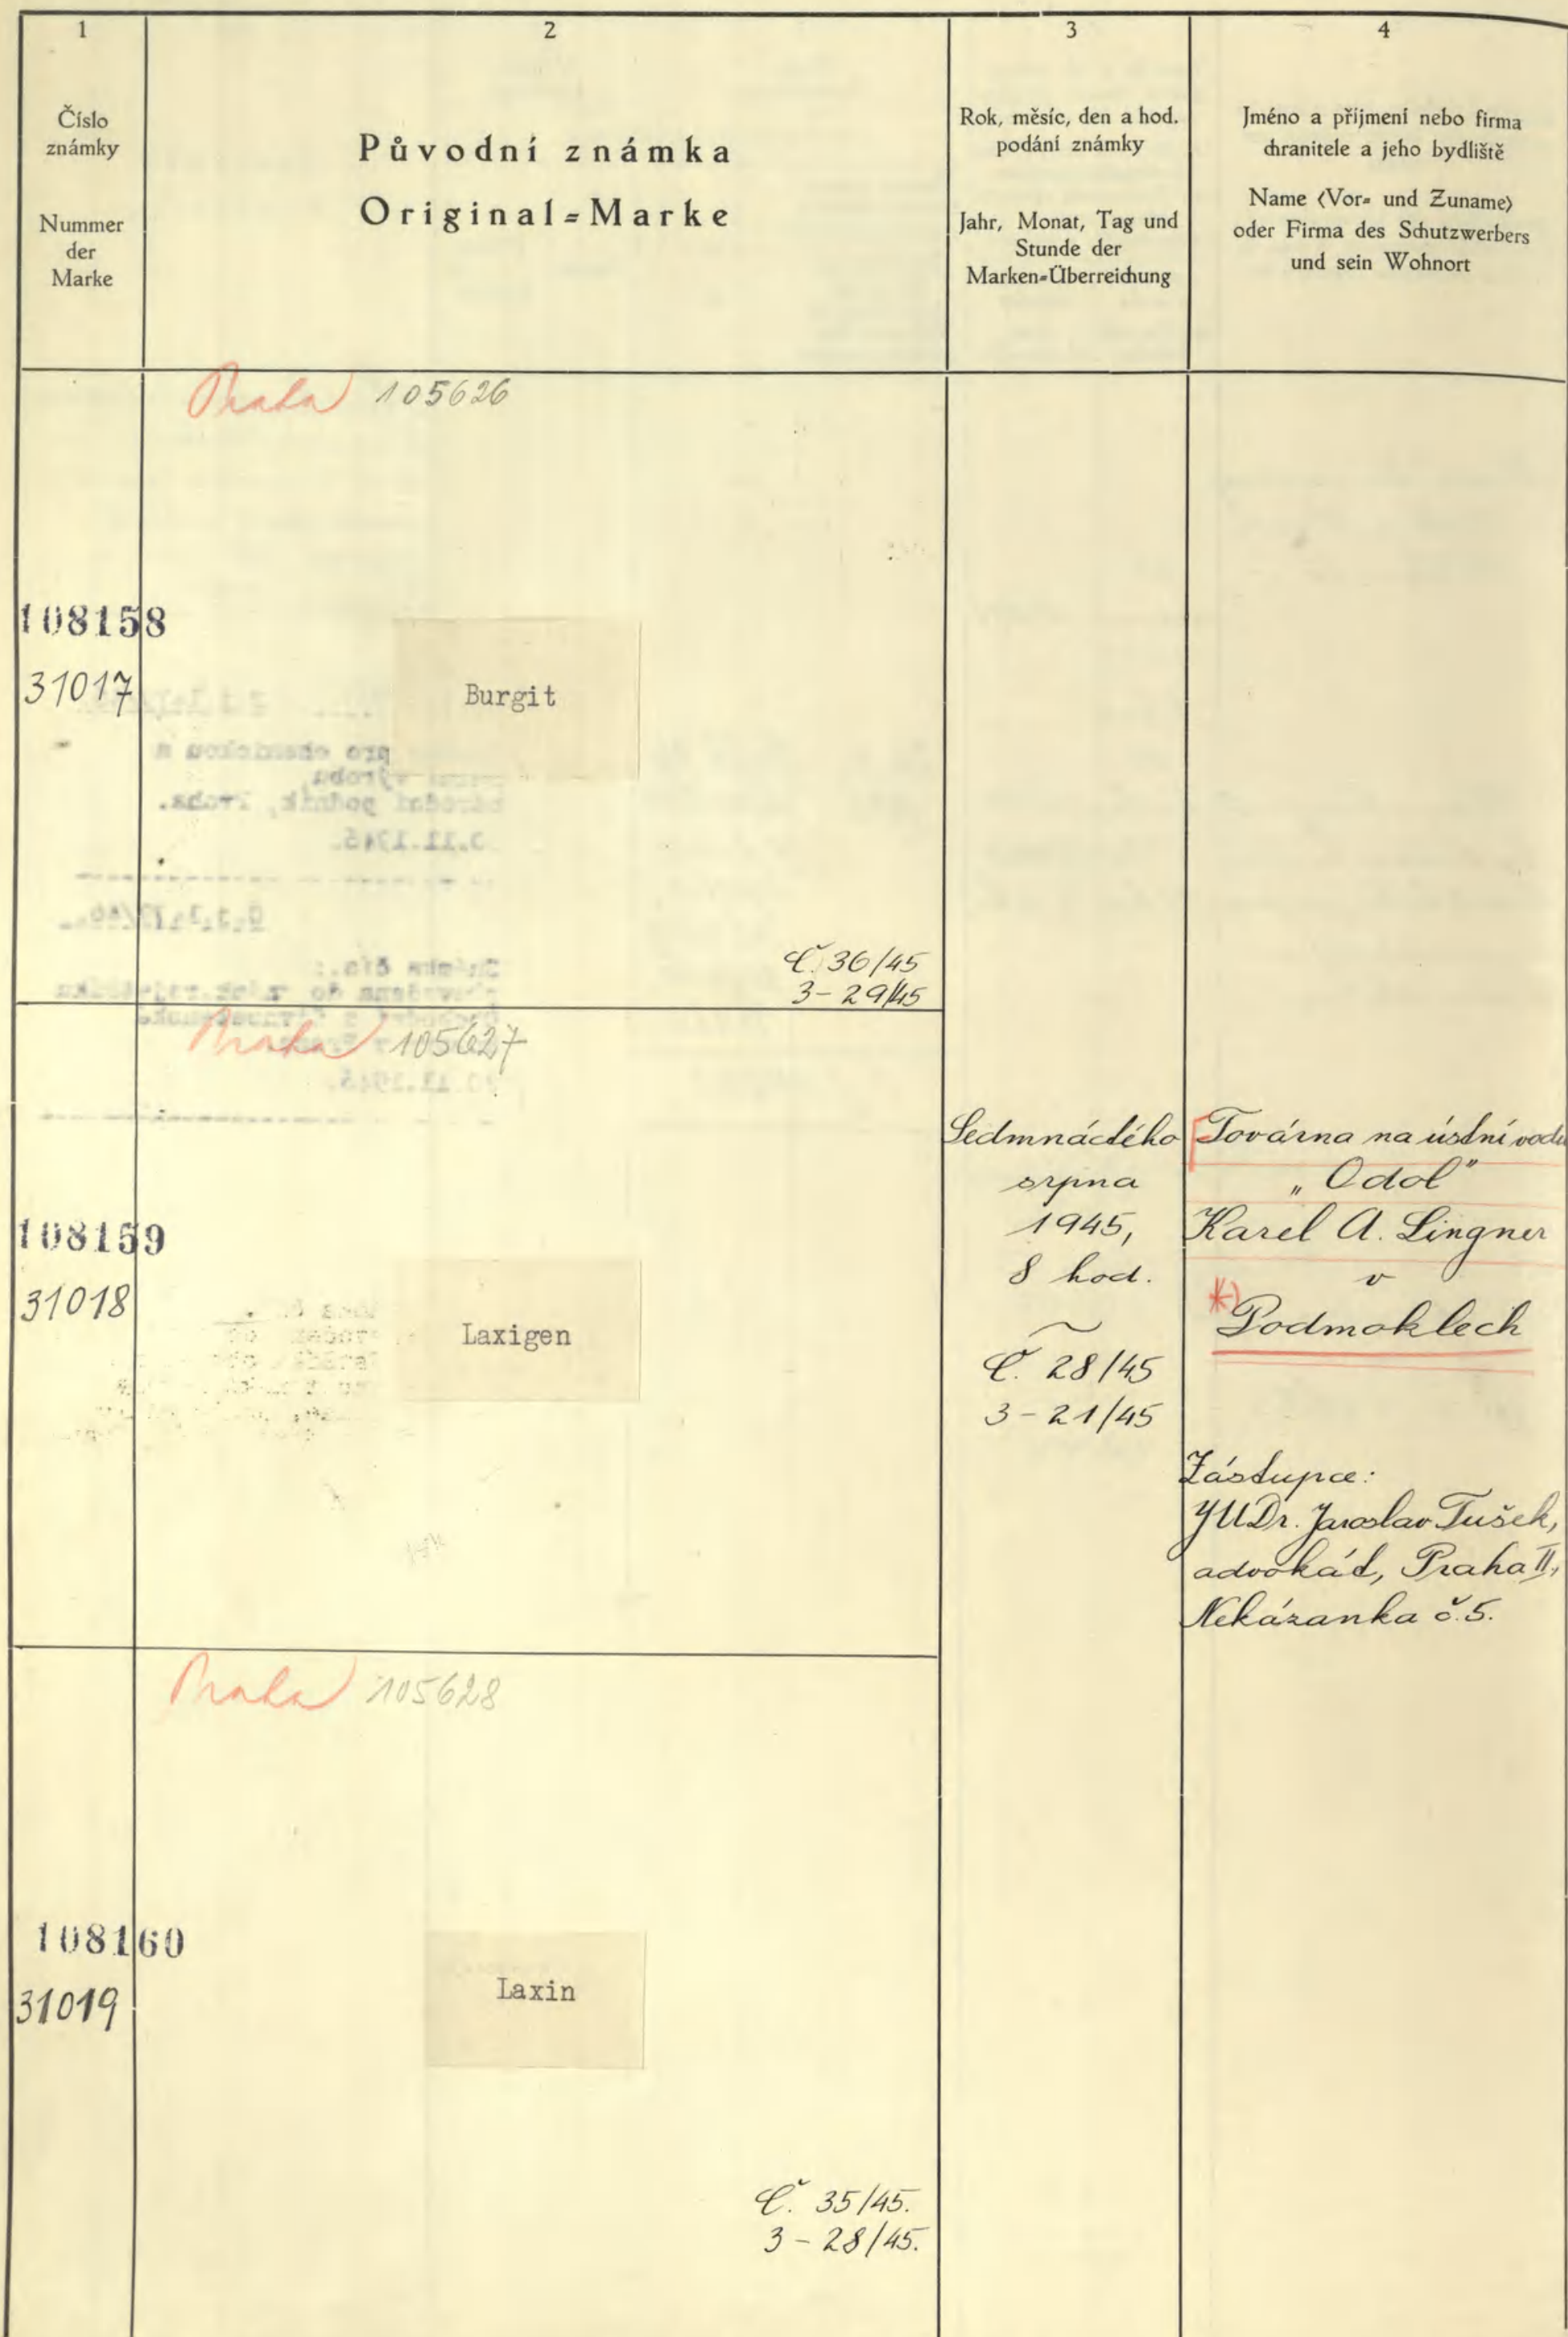 1
Číslo
známky
Nummer
der
Marke
2
Původní známka
Original=Marke
3
Rok, měsíc, den a hod.
podání známky
Jahr, Monat, Tag und
Stunde der
Marken=Überreichung
4
Jméno a příjmení nebo firma
chranitele a jeho bydliště
Name (Vor= und Zuname)
oder Firma des Schutzwerbers
und sein Wohnort
Praha 105626
108158
31017
Burgit
Č. 36/45
3-29/45
Praha 105627
108159
31018
Laxigen
Sedmnáctého
srpna
1945,
8 hod.
Č. 28/45
3-21/45
Továrna na ústní vodu
„Odol"
Karel A. Lingner
v
*) Podmoklech
Zástupce:
JUDr. Jaroslav Tušek,
advokát, Praha II,
Nekázanka č. 5.
Praha 105628
108160
31019
Laxin
Č. 35/45.
3-28/45.